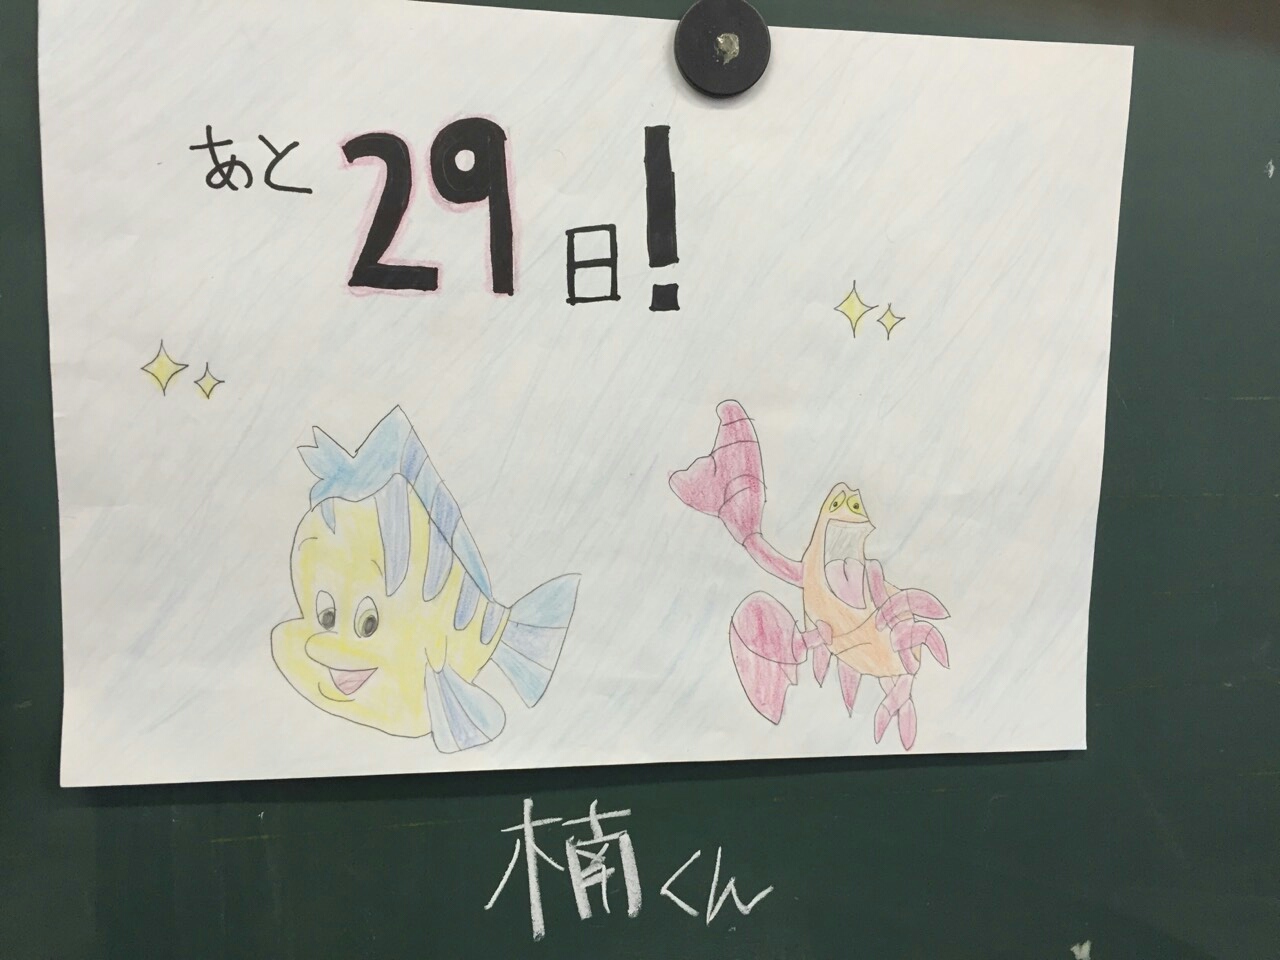 あと29日!
楠くん